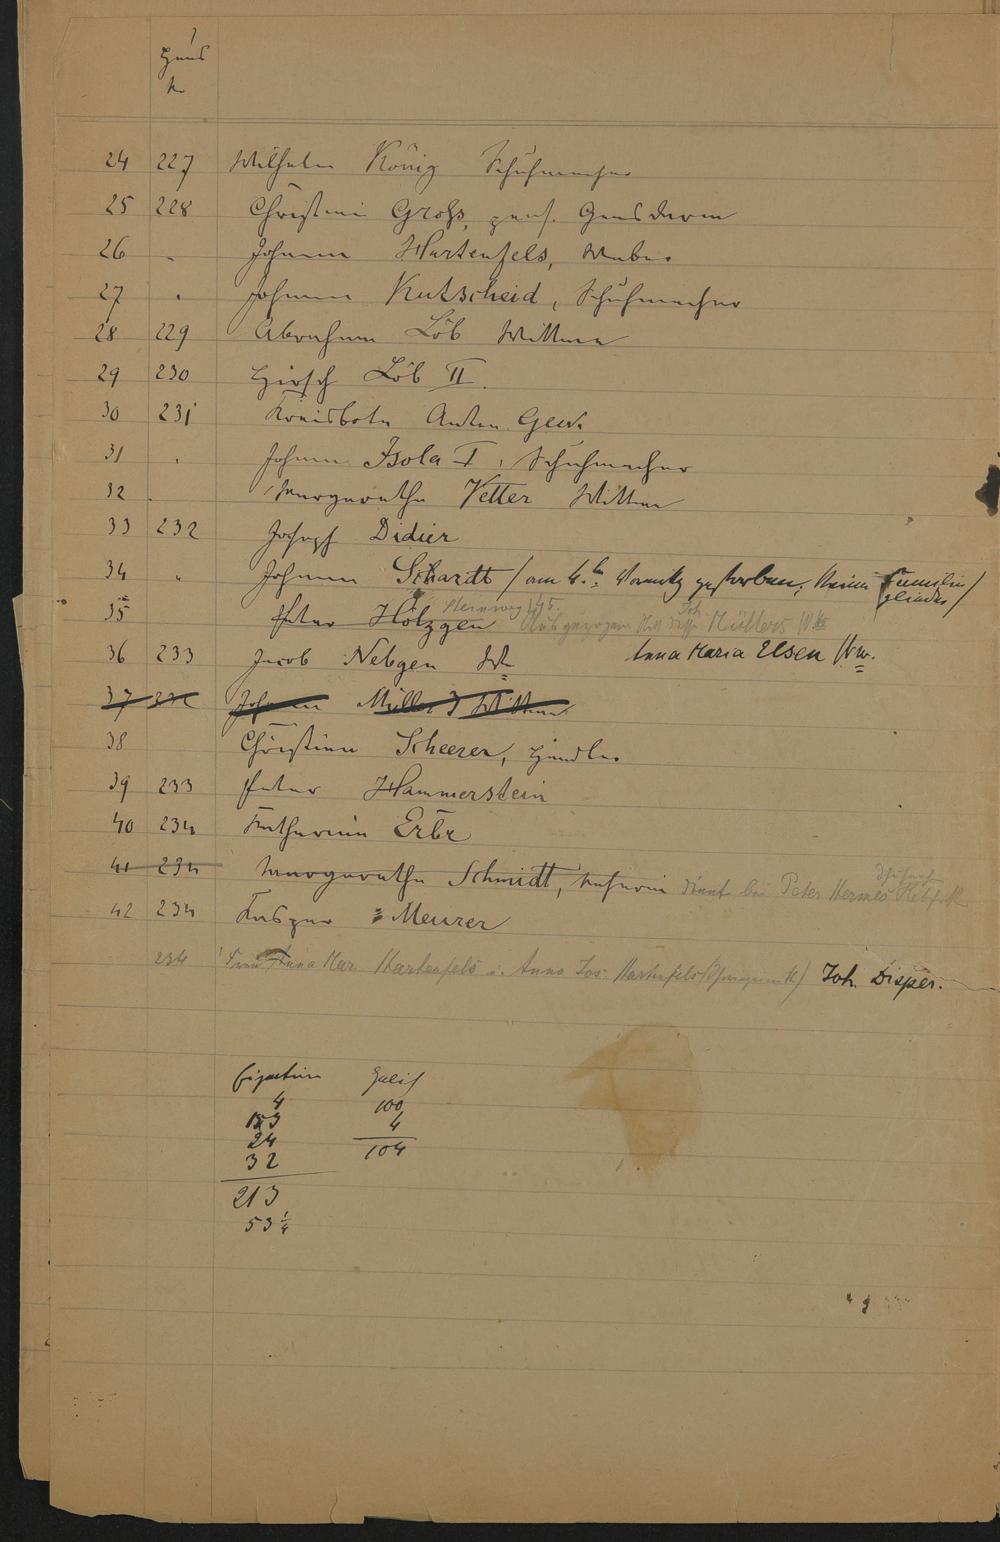 Haus
No
24 227 Wilhelm König Schuhmacher
25 228 Christian Groß, pens. Gensdarm
26 " Johann Hartenfels, Weber
27 " Johann Kutscheid, Schuhmacher
28 229 Abraham Löb Wittwe
29 230 Hirsch Löb II.
30 231 Kreisbote Anton
31 " Johann Isola I, Schuhmacher
32 Margaretha Vetter Wittwe
33 232 Joseph Didier
34 " Johann Schardt / am gestorben, keine Familien
glieder /
Steinweg 145. Joh.
35 Peter Hölzgen Ausgezogen Müllers Ww
36 233 Jacob Nebgen Ww Anna Maria Elsen Ww.
37 Johann Müller 3 Wittwe
38 Christian Scheerer, Händler
39 233 Peter Hammerstein
40 234 Katharina Erbe
41 234 Margaretha Schmidt, dient bei Peter Hermes
42 234 Kaspar Meurer
234 Frau Anna Mar. Hartenfels u. Anna Jos. Hartenfels Joh. Disper.
4 100
153 4
24 104
32
213
53 1/4